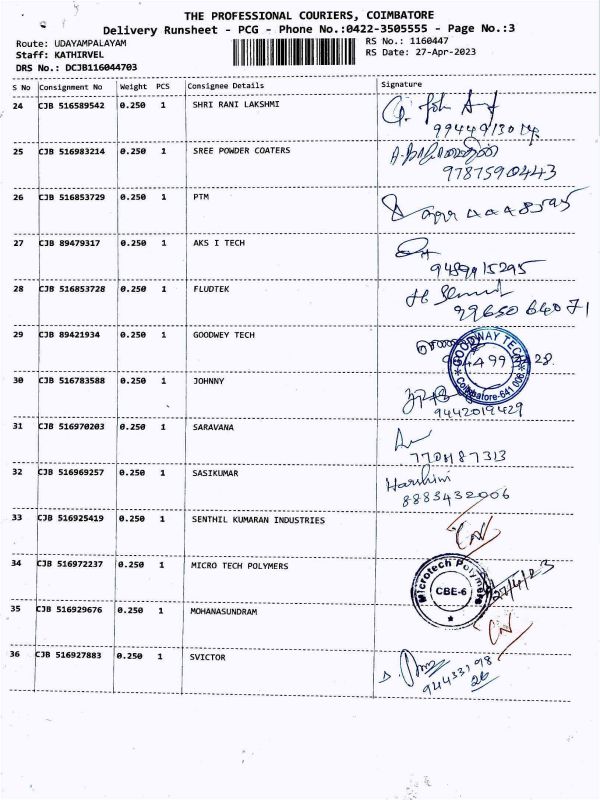 THE PROFESSIONAL COURIERS, COIMBATORE
Delivery Runsheet - PCG - Phone No.:0422-3505555 - Page No.:3
Route: UDAYAMPALAYAM RS No.: 1160447
Staff: KATHIRVEL RS Date: 27-Apr-2023
DRS No.: DCJB116044703
S No Consignment No Weight PCS Consignee Details Signature
24 CJB 516589542 0.250 1 SHRI RANI LAKSHMI
25 CJB 516983214 0.250 1 SREE POWDER COATERS
9787590443
26 CJB 516853729 0.250 1 PTM
27 CJB 89479317 0.250 1 AKS I TECH
9489915295
28 CJB 516853728 0.250 1 FLUDTEK
99650 64071
29 CJB 89421934 0.250 1 GOODWEY TECH
GOODWAY TECH
Coimbatore-641 006
30 CJB 516783588 0.250 1 JOHNNY
9442019429
31 CJB 516970203 0.250 1 SARAVANA
32 CJB 516969257 0.250 1 SASIKUMAR
Harshini
8883432006
33 CJB 516925419 0.250 1 SENTHIL KUMARAN INDUSTRIES
34 CJB 516972237 0.250 1 MICRO TECH POLYMERS
Microtech Polymers
CBE-6
27/4/23
35 CJB 516929676 0.250 1 MOHANASUNDRAM
36 CJB 516927883 0.250 1 SVICTOR
94433198
26